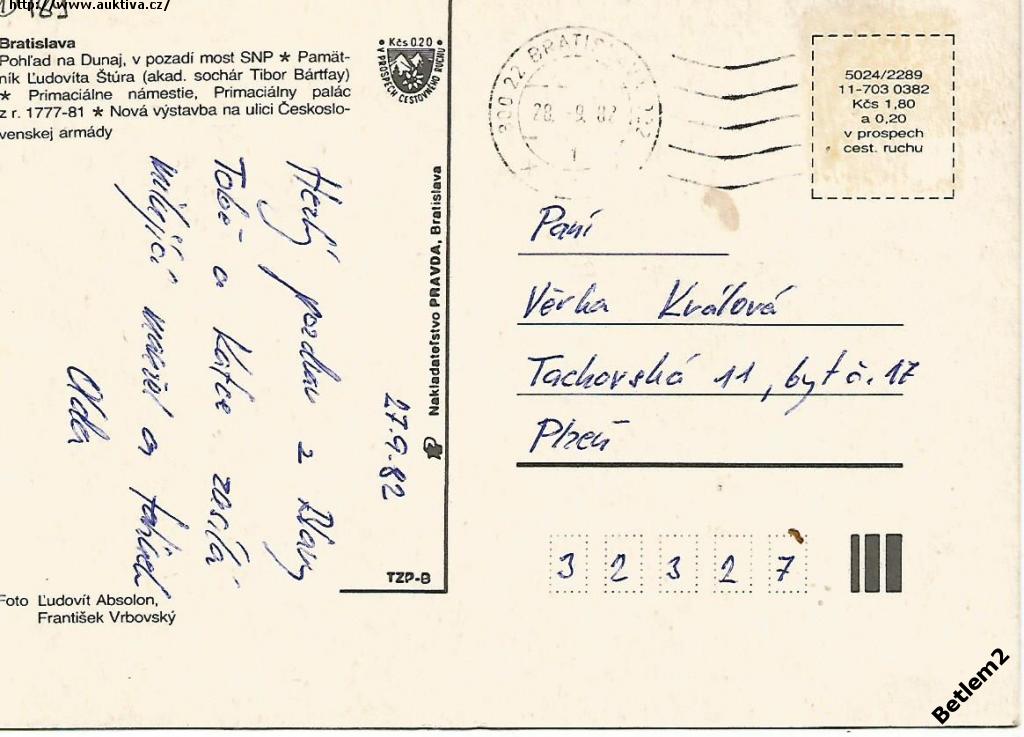 http://www.auktiva.cz/
Bratislava
Pohľad na Dunaj, v pozadí most SNP * Pamät-
ník Ľudovíta Štúra (akad. sochár Tibor Bártfay)
* Primaciálne námestie, Primaciálny palác
z r. 1777-81 * Nová výstavba na ulici Českoslo-
venskej armády
• Kčs 0.20 •
V PROSPECH CESTOVNÉHO RUCHU
Hezký pozdrav z Blavy
Tobě a Katce zasílá
milující manžel a tatínek
27.9.82
Nakladateľstvo PRAVDA, Bratislava
TZP-B
Foto Ľudovít Absolon,
František Vrbovský
BRATISLAVA
28.-9.82
1
5024/2289
11-703 0382
Kčs 1,80
a 0,20
v prospech
cest. ruchu
Paní
Věrka Králová
Tachovská 11, byt č. 17
Plzeň
3 2 3 2 7
Betlem2